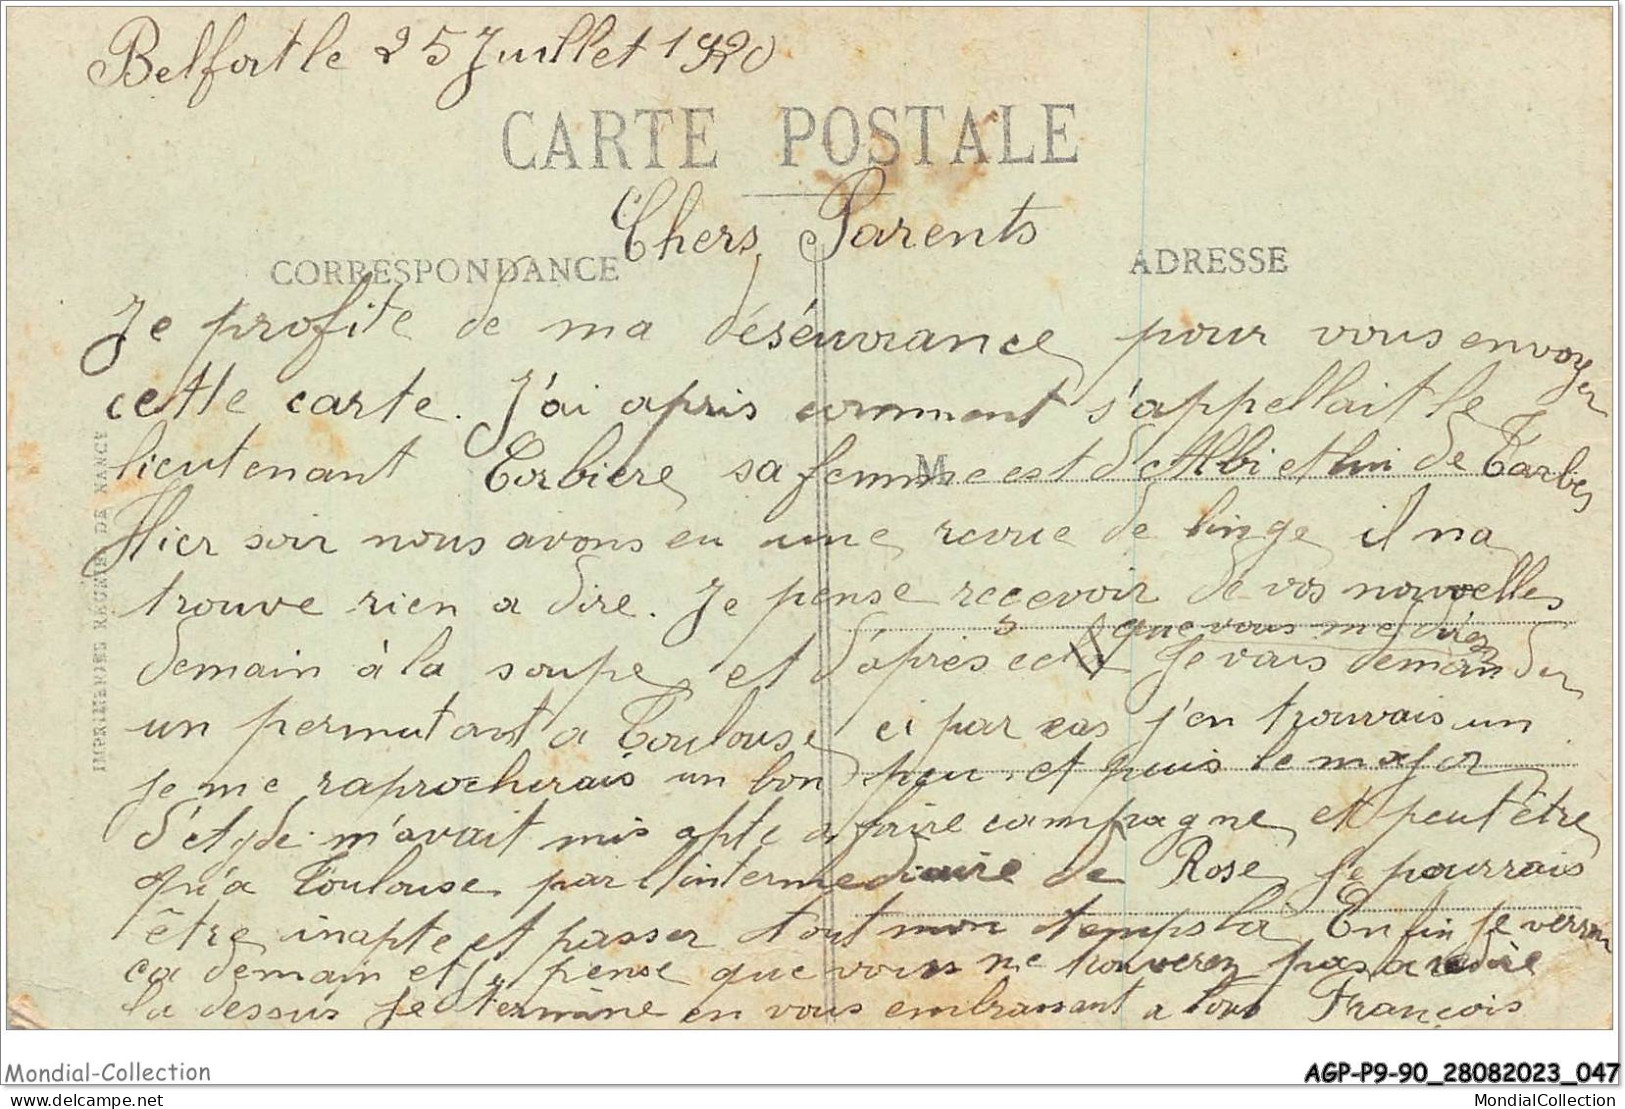 Belfort le 25 Juillet 1920
CARTE POSTALE
Chers Parents
CORRESPONDANCE
ADRESSE
Je profite de ma déséuvrance pour vous envoyer
cette carte. J'ai apris comment s'appellait le
lieutenant Corbiere, sa femme est d'Albi et lui de Tarbes
M
Hier soir nous avons eu une revue de linge il na
trouve rien a dire. Je pense recevoir de vos nouvelles
que vous me direz
demain à la soupe, et d'après cela Je vais demander
un permutant a Toulouse ci par cas j'en trouvais un
je me raprocherais un bon peu. et puis le major
d'ici m'avait mis apte a faire campagne, et peut être
qu'a Toulouse par l'intermediaire de Rose, je pourrais
être inapte et passer tout mon temps la. Enfin je verrai
ca demain et je pense que vous ne trouverez pas a redire
la dessus Je termine en vous embrassant a tous François
IMPRIMERIES REUNIES DE NANCY
Mondial-Collection
AGP-P9-90_28082023_047
www.delcampe.net
MondialCollection